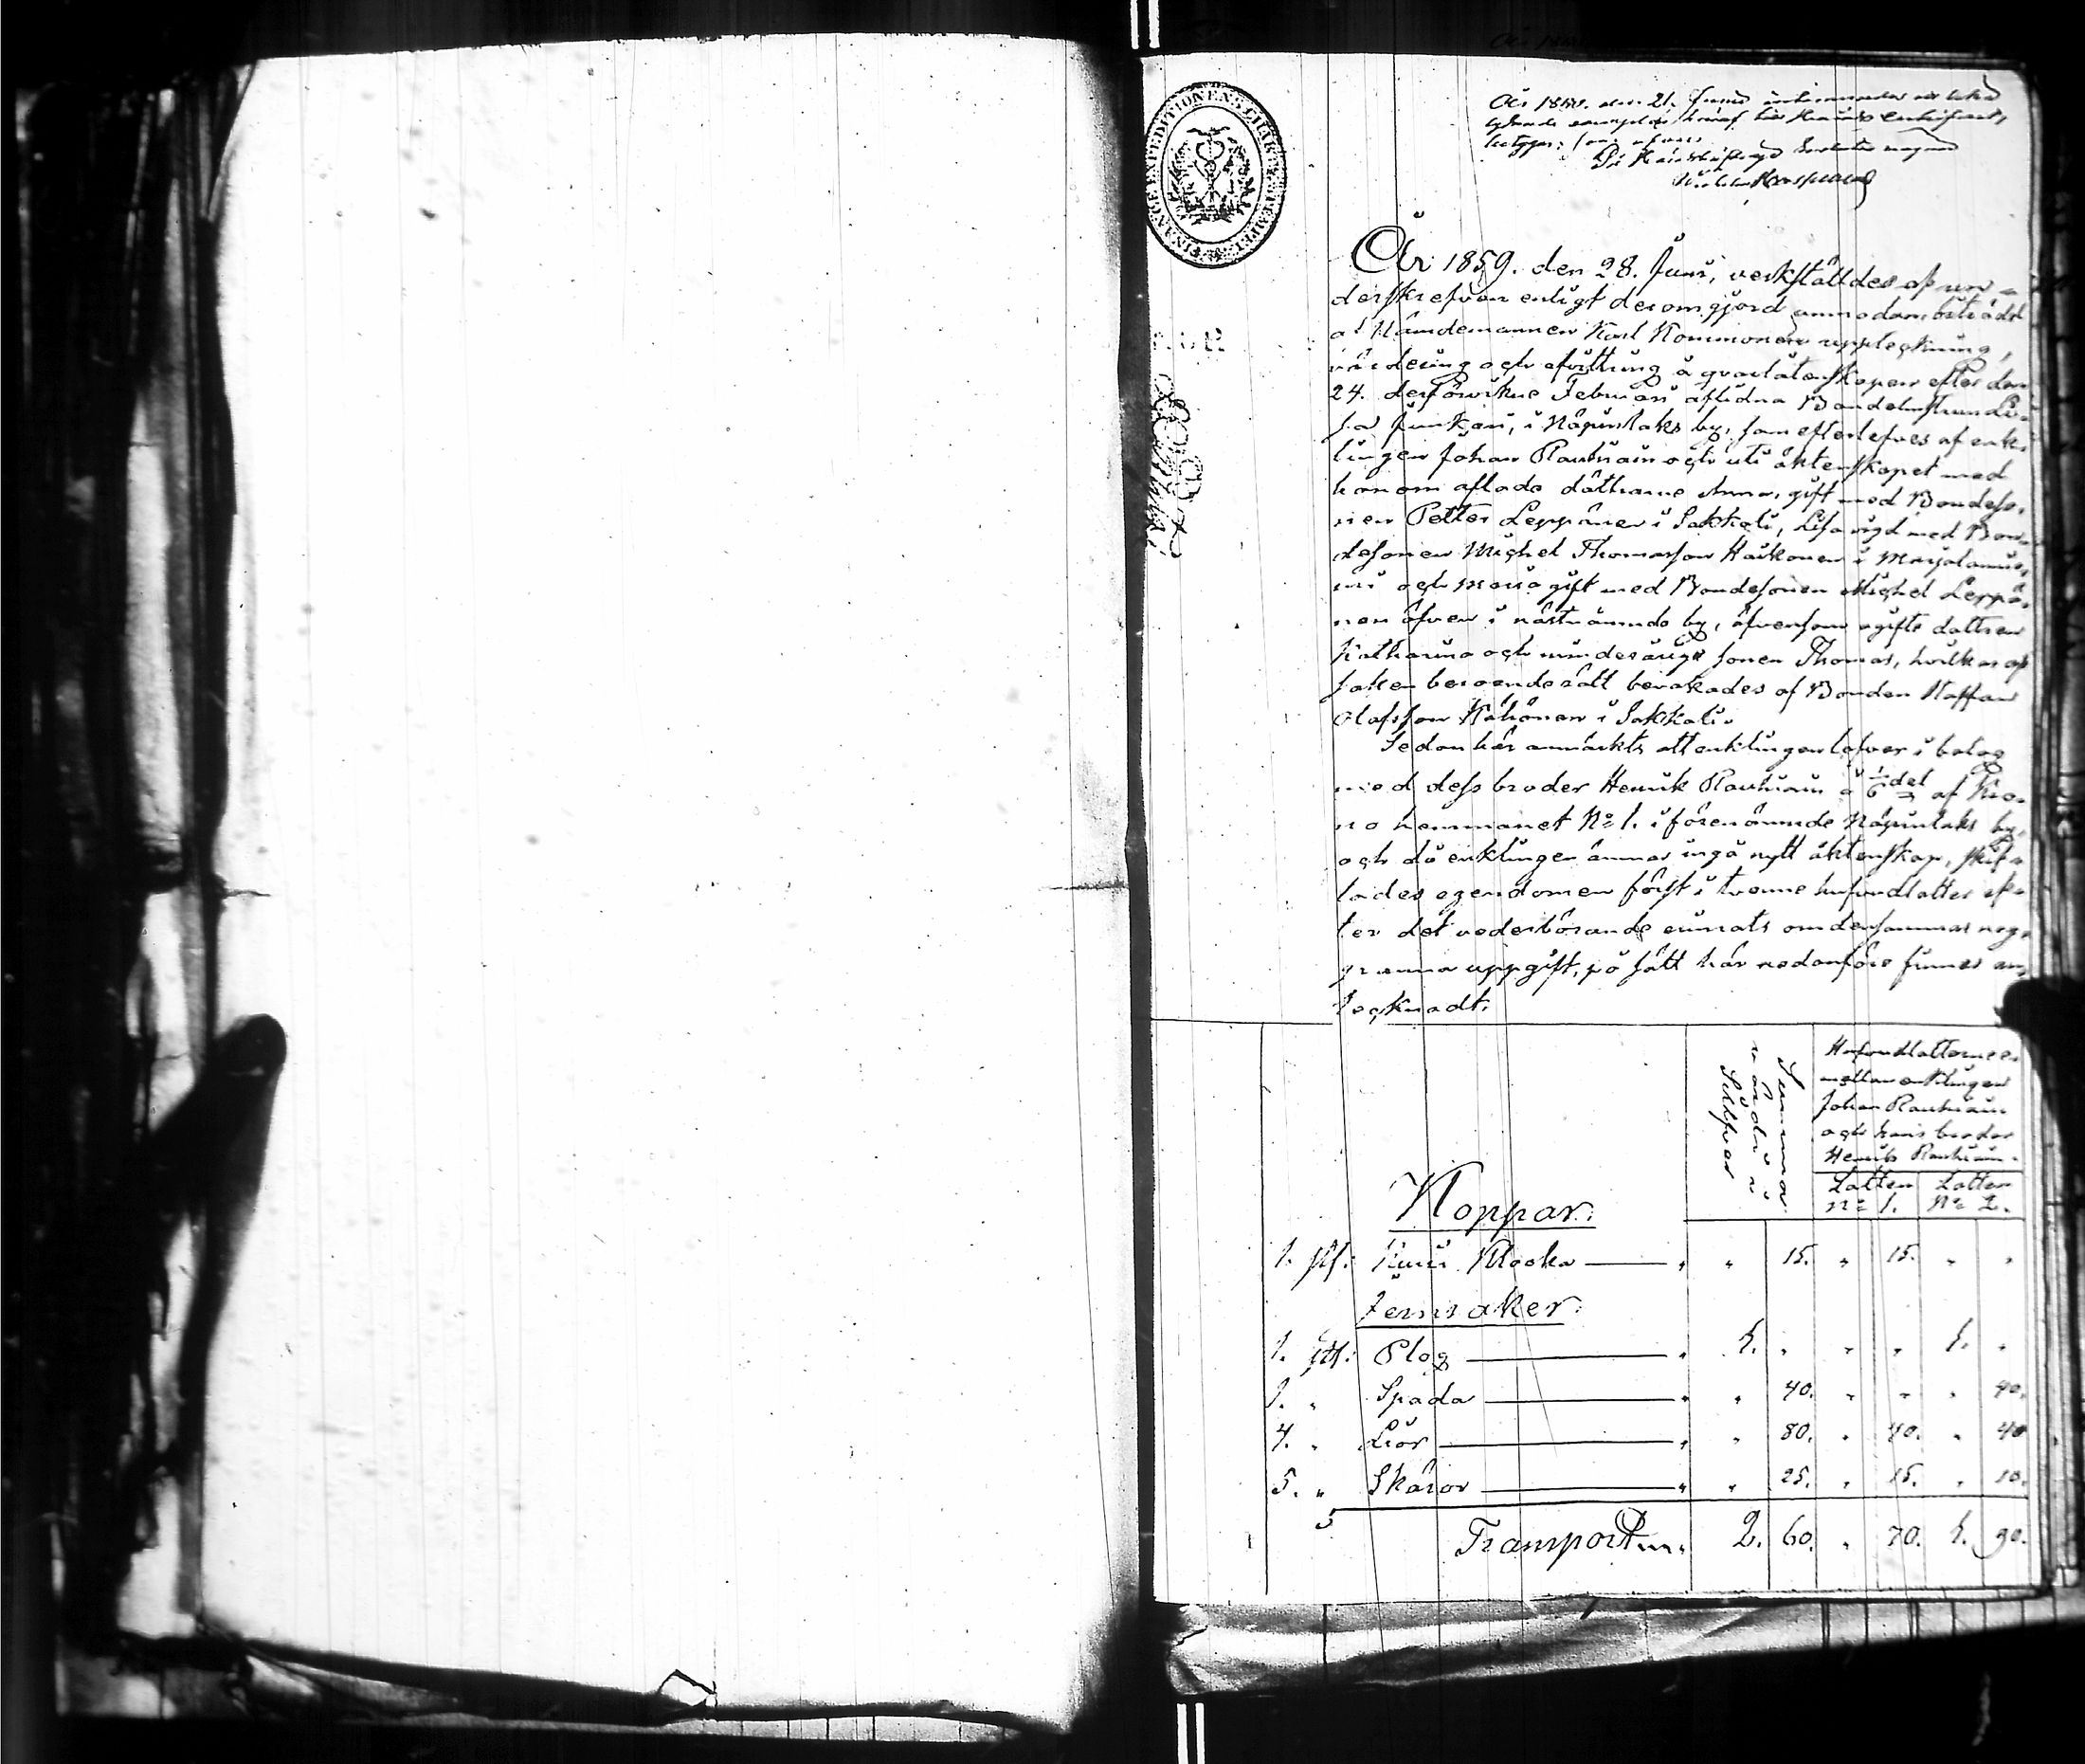 FINANCE EXPEDITIONENS CHARTÆ STEMPEL
År 1859. den 28. Juni, verkställdes af un-
derskrefven enligt derom gjord anmodan biträdd
af Nämdemannen Karl Kommonen uppteckning,
värdering och afvittring å qvarlåtenskapen efter den
24. Februari aflidna Bondehustrun Li-
sa Junkari, i Näpinlaks by, som efterlefves af enk-
lingen Johan Rautiain och uti äktenskapet med
honom aflade döttrarne Anna, gift med Bondeso-
nen Petter Leppänen i Sakkali, Lisa vigd med Bon-
desonen Michel Thomasson Haikonen i
och Maria gift med Bondesonen Michel Leppä-
nen äfven i nästnämnde by, äfvensom ogifte dottren
Katharina och minderårige sonen Thomas, hvilkas af
saken beroende rätt bevakades af Bonden Staffan
Olofsson Kähönen i Sakkali.
Sedan här anmärkts att enklingen lefver i bolag
med dess broder Henrik Rautiain å 1/6 del af Kro-
no hemmanet No 1. i förenämnde Näpinlaks by,
och då enklingen ämnar ingå nytt äktenskap, skif-
tades egendomen först i tvenne hufvudlotter ef-
ter det vederbörande enats om densammas nog-
granna uppgift, på sätt här nedanföre finnes an-
tecknadt.
Summa
värde i
Silfver
Hufvudlotterne e.
mellan enklingen
Johan Rautiain
och hans broder
Henrik Rautiain.
Lotten No 1. Lotten No 2.
Koppar.
1. st: Klocka 15. 15.
Jernsaker.
1. st: Plog 1. 1.
1. " Spada 40. 40.
4. " Liar 80. 40. 40
5. " Skäror 25. 15. 10.
Transport 2. 60. 70. 1. 90.